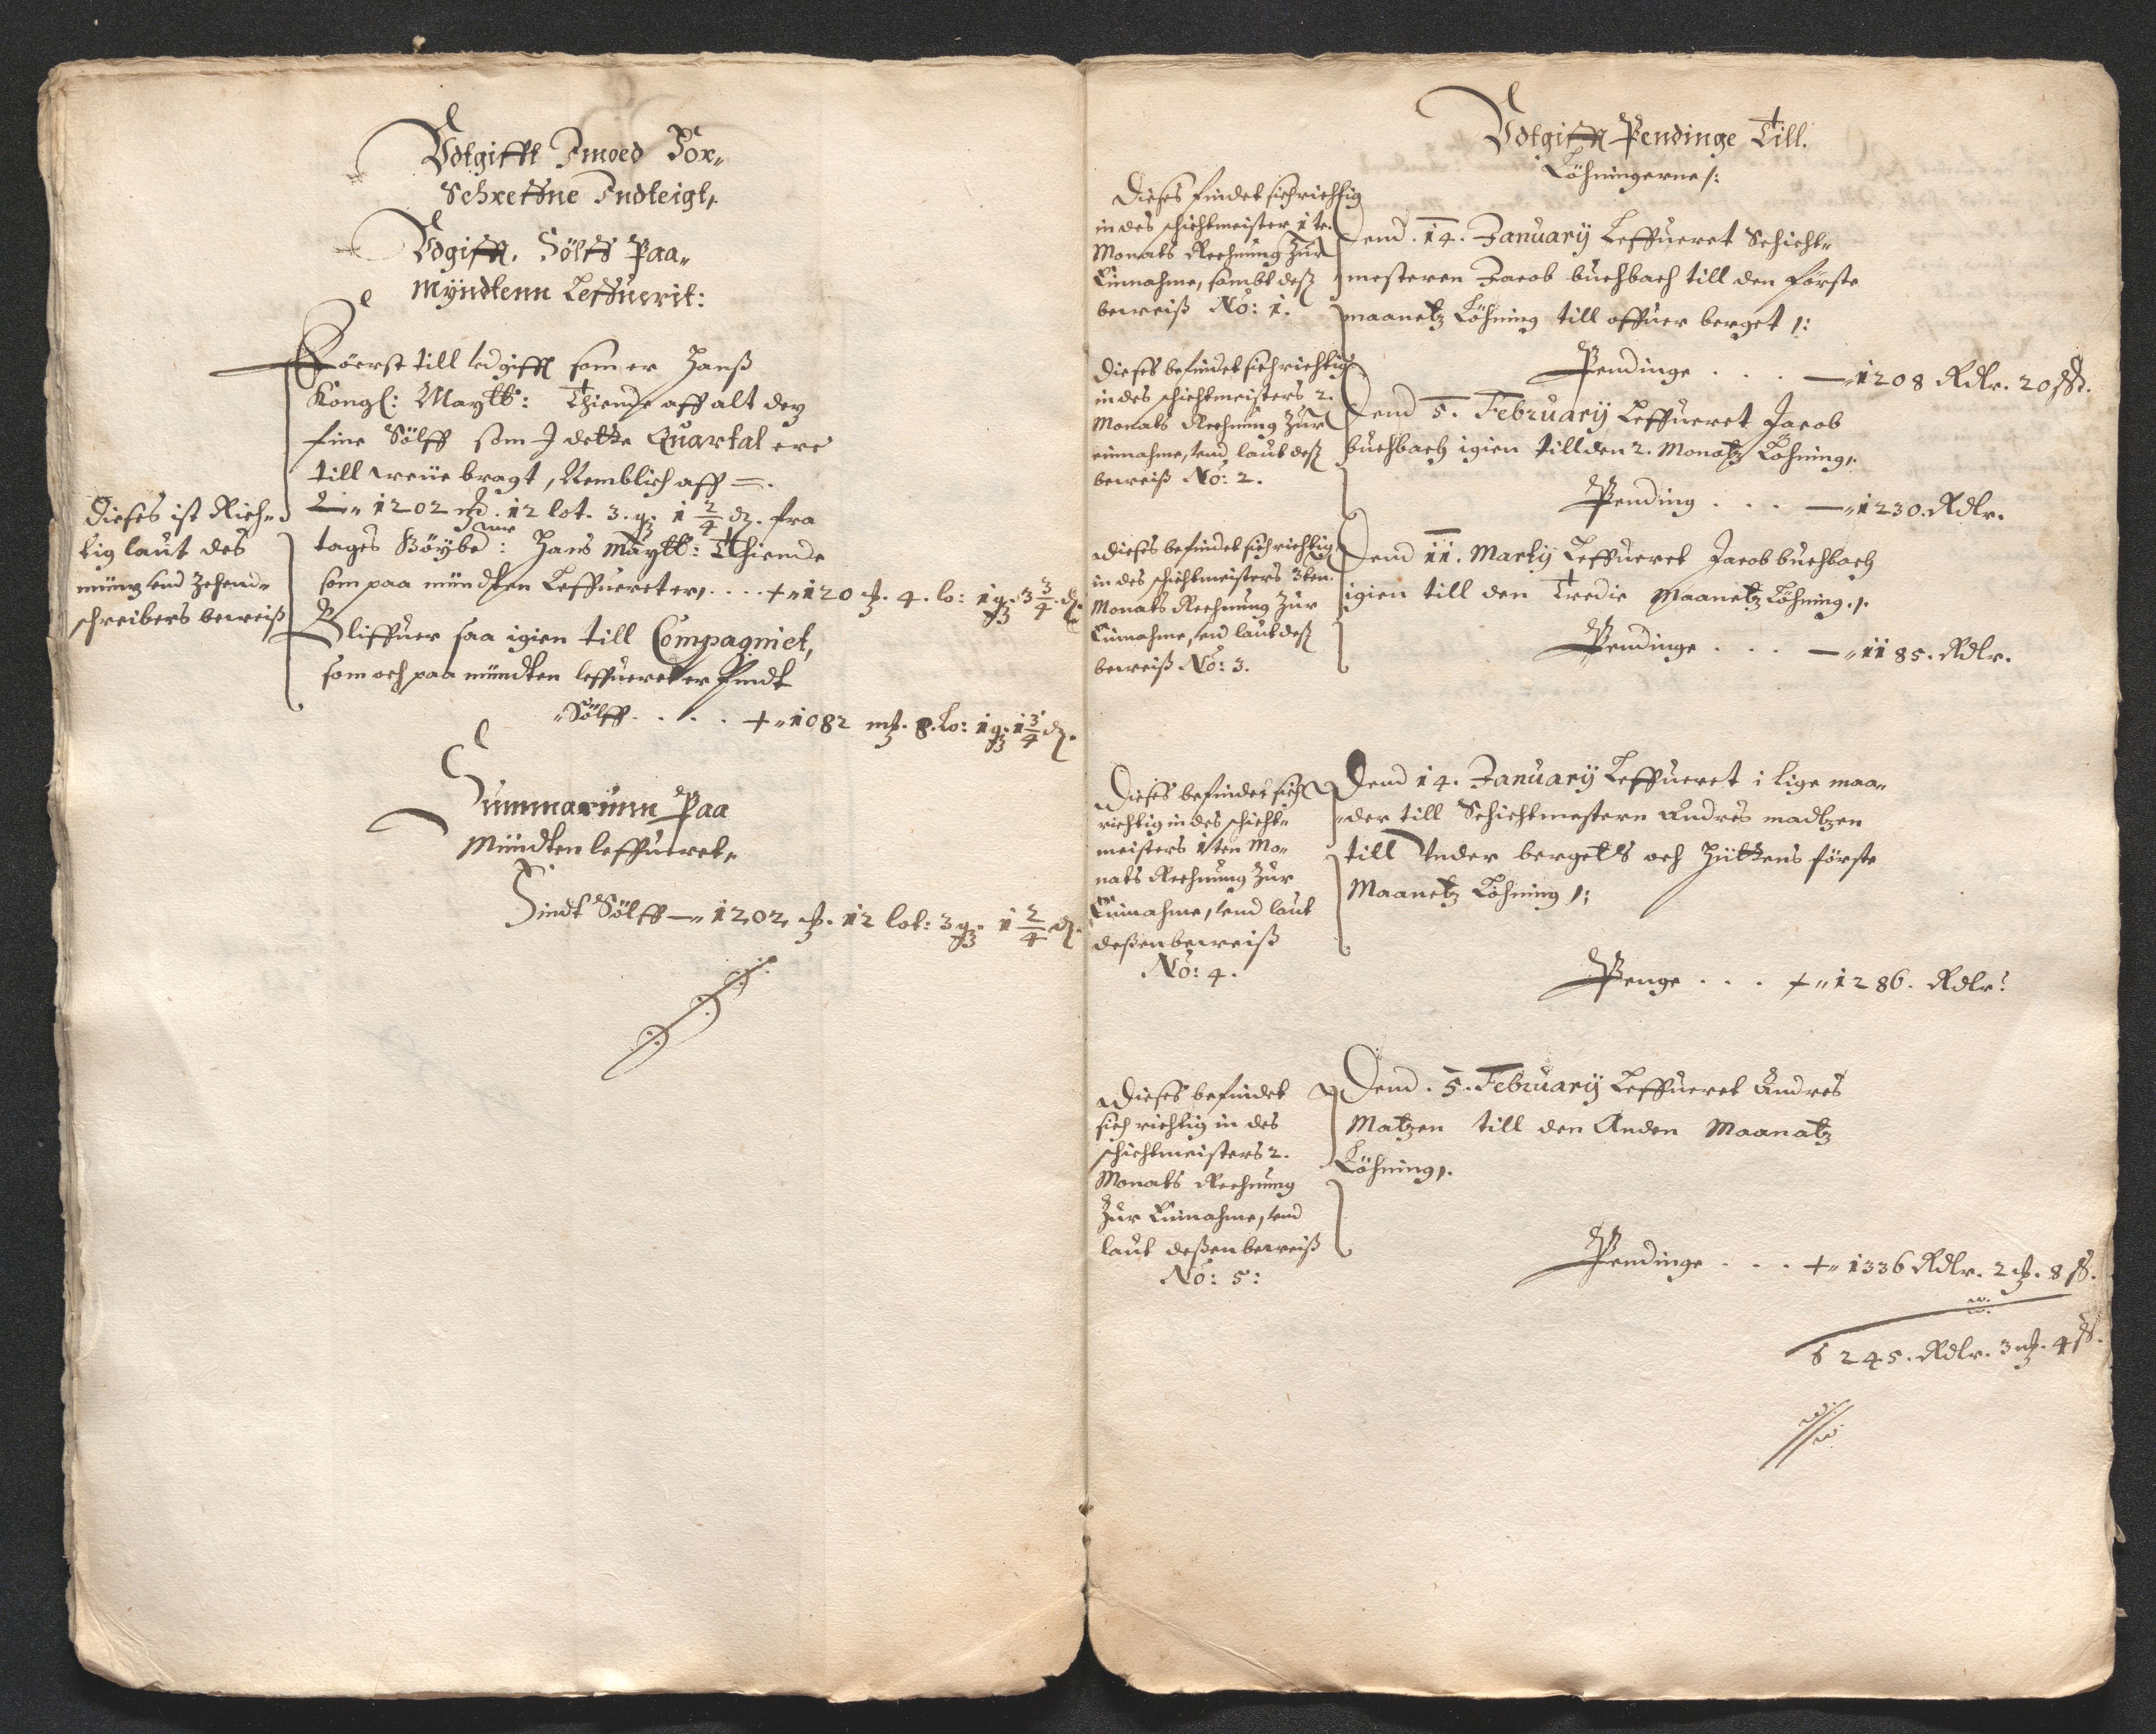 Vdtgifftt Imoed For„
Schreffne Indteigt,
Vdgifft. Sölff Paa„
Myndtenn Leffuerit:
Föerst till vdgifft som er Hanß
Kongl: Maytt: Thiende aff alt dez
fine Sölff som I dette Quartal ere
till weüe bragt, Nemblich aff
1202 mß. 12 lot. 3. q. 1 2/4 d. fra
tages Höybe: Hans Maytt: Thiende
som paa mündten Leffueret er, . . . . 120 mß. 4. lo: 1 q. 3 3/4 d.
Bliffuer saa igien till Compagniet,
som och paa mündten leffueret er findt
Sölff . . . . 1082 mß. 8. Lo: 1 q. 1 3/4 d.
Dieses ist Rich„
tig laut des
müntz vnd Zehend„
schreibers beweiß
Summarumm Paa
Mündten leffueret,
Findt Sölff — 1202 mß. 12 lot: 3 q. 1 2/4 d.
Vdtgifft Pendinge Till.
Löhningerne /:
Dieses findet sich richtig
in des schichtmeister 1te.
Monats Rechnung Zur
Einnahme, sambt deß
beweiß No: 1.
Dend. 14. January Leffueret Schicht„
mesteren Jacob buchbach till den förste
maanetz Löhning till offuer berget /:
Pendinge . . . — 1208 Rdlr. 20 ß.
Dieses befindet sich richtig
in des schichtmeisters 2.
Monats Rechnung Zur
einnahme, vnd laut deß
beweiß No: 2.
Dend 5. February Leffueret Jacob
buchbach igien till den 2. Monatz Löhning,
Pending . . . — 1230. Rdlr.
Dieses befindet sich richtig
in des schichtmeisters 3ten.
Monats Rechnung Zur
Einnahme, vnd laut deß
beweiß No: 3.
Dend 11. Marty Leffueret Jacob buchbach
igien till den Tredie Maanetz Löhning. /.
Pendinge . . . — 1185. Rdlr.
Dieses befindet sich
richtig in des schicht„
meisters 1ten Mo„
nats Rechnung Zur
Einnahme, vnd laut
deßen beweiß
No: 4.
Dend 14. January Leffueret i lige maa„
„der till Schichtmestern Andres madtzen
till Vnder bergetts och Hüttens förste
Maanetz Löhning /:
Penge . . . 1286. Rdlr:
Dieses befindet
sich richtig in des
schichtmeisters 2.
Monats Rechnung
Zur Einnahme, vnd
laut deßen beweiß
No: 5:
Dend. 5. February Leffueret Andres
Matzen till den Anden Maanatz
Löhning,.
Pendinge . . . 1336 Rdlr. 2 mß. 8 ß.
6245. Rdlr. 3 mß. 4 ß.